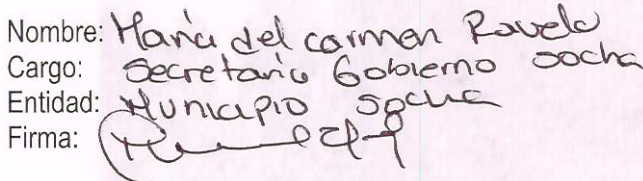 Nombre: Maria del carmen Ravelo
Cargo: Secretario Gobierno socha
Entidad: Municipio socha
Firma: